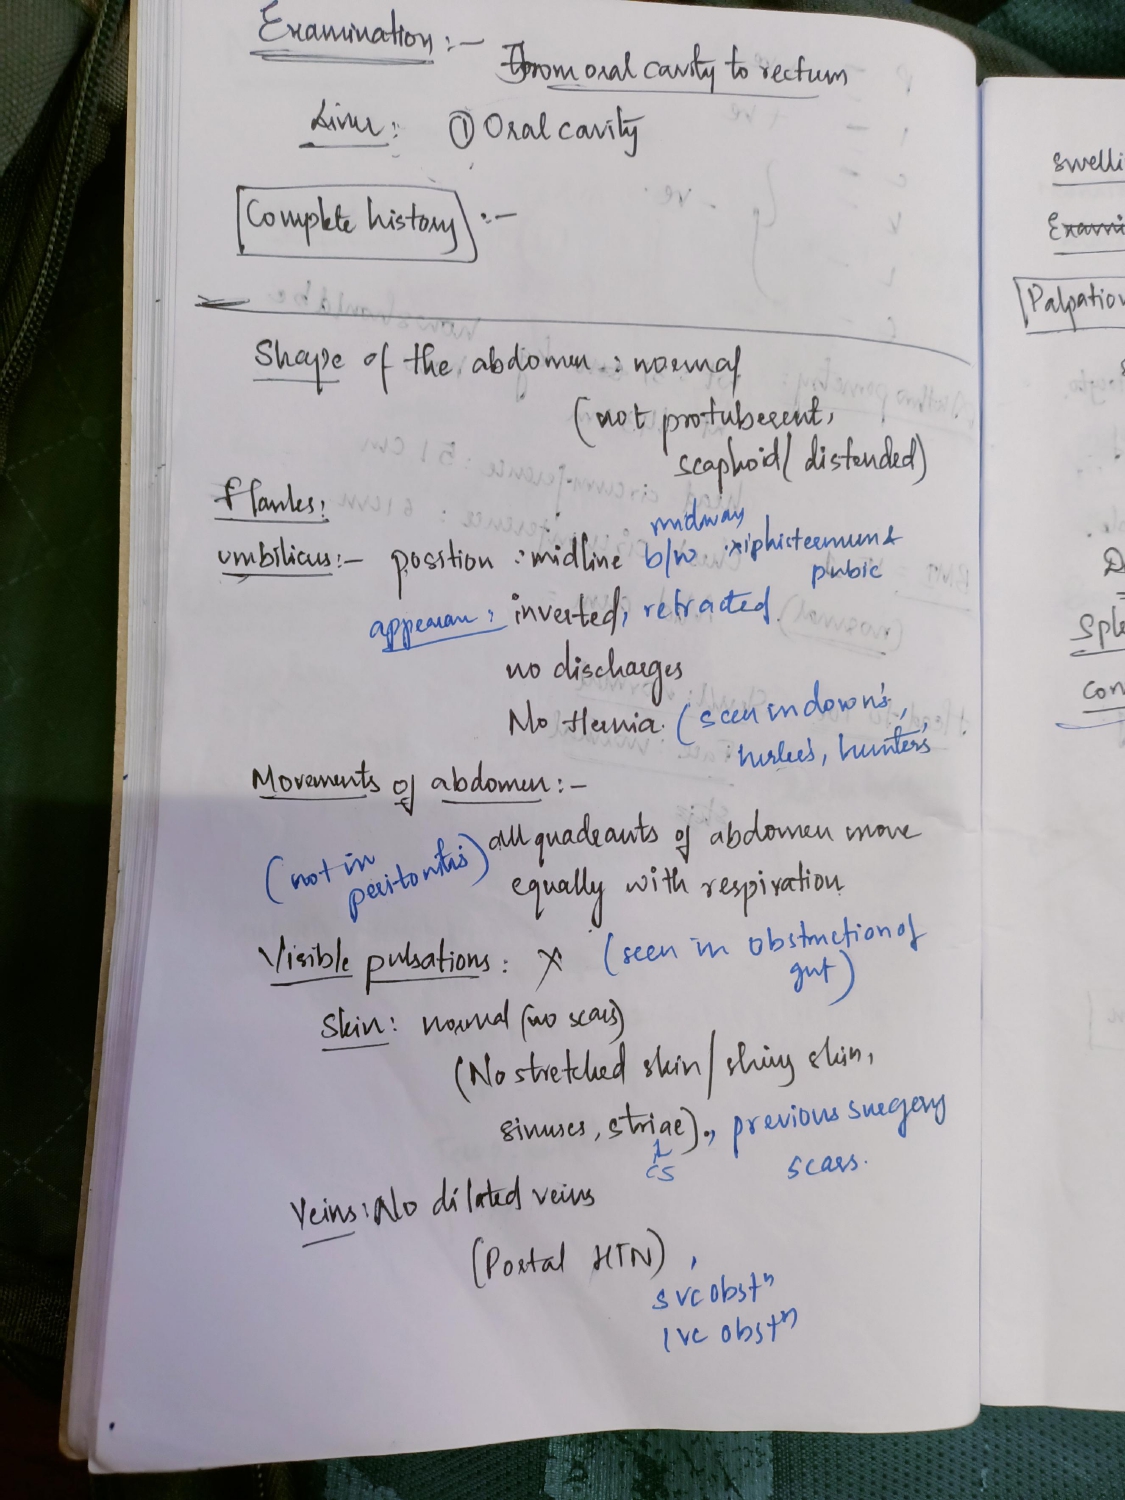 Examination :-
From oral cavity to rectum
Liver: ① Oral cavity
Complete history :-
Shape of the abdomen : normal
(not protuberent,
scaphoid / distended)
Flanks:
umbilicus:- position : midline midway b/w xiphisternum &
pubic
appearan : inverted, retracted
no discharges
No Hernia. (seen in down's,
hurler's, hunter's
Movements of abdomen :-
(not in peritonitis) all quadrants of abdomen move
equally with respiration
Visible pulsations : X (seen in obstruction of
gut)
Skin: normal (no scars)
(No stretched skin / shiny skin,
sinuses, striae)., previous surgery
CS scars.
Veins: No dilated veins
(Portal HTN) ,
SVC obstⁿ
IVC obstⁿ
swelli
Exami
Palpation
Sple
con